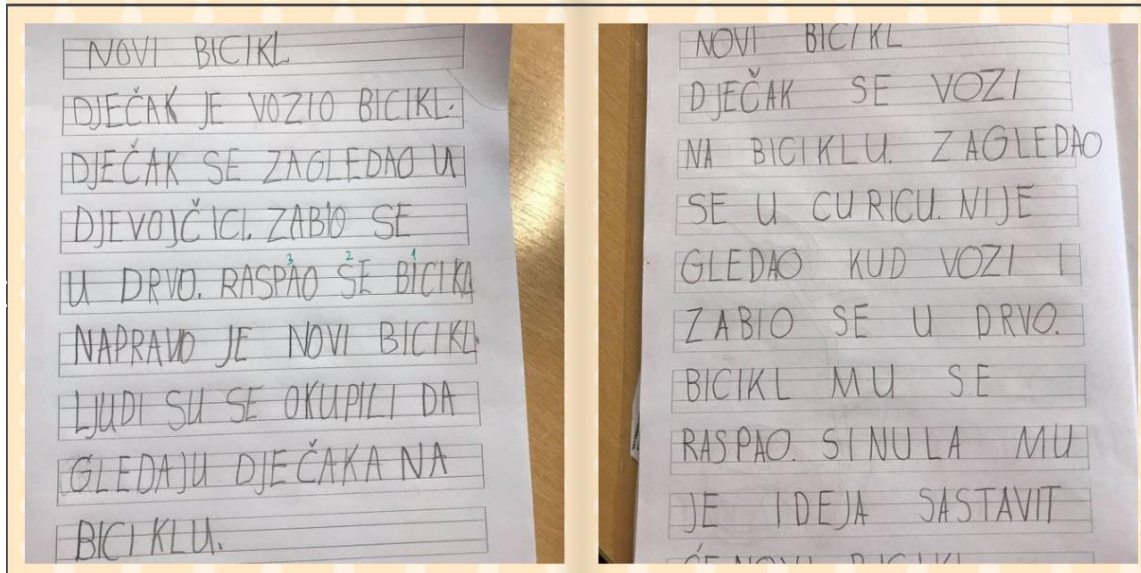 NOVI BICIKL
DJEČAK JE VOZIO BICIKL.
DJEČAK SE ZAGLEDAO U
DJEVOJČICI. ZABIO SE
3 2 1
U DRVO. RASPAO SE BICIKL
NAPRAVIO JE NOVI BICIKL.
LJUDI SU SE OKUPILI DA
GLEDAJU DJEČAKA NA
BICIKLU.
NOVI BICIKL
DJEČAK SE VOZI
NA BICIKLU. ZAGLEDAO
SE U CURICU. NIJE
GLEDAO KUD VOZI I
ZABIO SE U DRVO.
BICIKL MU SE
RASPAO. SINULA MU
JE IDEJA SASTAVIT
ĆE NOVI BICIKL